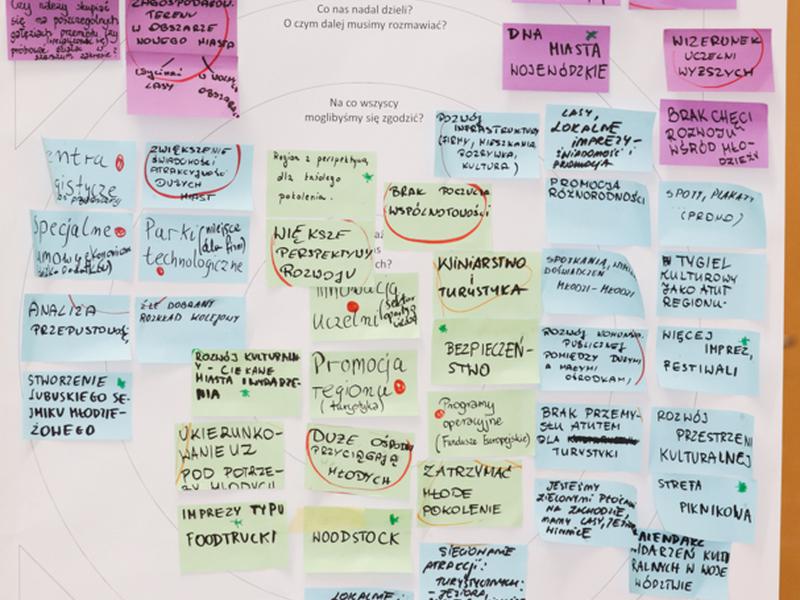 Co nas nadal dzieli?
O czym dalej musimy rozmawiać?
Czy należy skupiać
się na poszczególnych
ZAGOSPODAROW.
TERENU
W OBSZARZE
NOWEGO MIASTA
LASY
DNA
MIASTA
WOJEWÓDZKIE
WIZERUNEK
UCZELNI
WYŻSZYCH
BRAK CHĘCI
ROZWOJU
WŚRÓD MŁO-
DZIEŻY
Na co wszyscy
moglibyśmy się zgodzić?
ROZWÓJ
INFRASTRUKTURY
(FIRMY, MIESZKANIA
ROZRYWKA,
KULTURA)
LASY,
LOKALNE
IMPREZY-
ŚWIADOMOŚĆ I
PROMOCJA
entra
gistyczne
ZWIĘKSZENIE
ŚWIADOMOŚCI
ATRAKCYJNOŚCI
DUŻYCH
MIAST
Region z perspektywą
dla każdego
pokolenia.
BRAK POCZUCIA
WSPÓLNOTOWOŚCI
PROMOCJA
RÓŻNORODNOŚCI
SPOTY, PLAKATY
(PROMO)
Specjalne
Parki (miejsce
(dla firm)
technologiczne
WIĘKSZE
PERSPEKTYWY
ROZWOJU
ch?
WINIARSTWO
I
TURYSTYKA
SPOTKANIA,
DOŚWIADCZEŃ
MŁODZI-MŁODZI
TYGIEL
KULTUROWY
JAKO ATUT
REGIONU.
Innowacja
Uczelni
ANALIZA
PRZEPUSTOWOŚ.
ŹLE DOBRANY
ROZKŁAD KOLEJOWY
BEZPIECZEŃ-
STWO
ROZWÓJ KOMUNIK.
PUBLICZNEJ
POMIĘDZY DUŻYMI
A MAŁYMI
OŚRODKAMI,
WIĘCEJ
IMPREZ,
FESTIWALI
ROZWÓJ KULTURALN
Y - CIEKAWE
MIASTA I WYDARZE-
NIA
Promocja
regionu
(turystyka)
STWORZENIE
LUBUSKIEGO SE-
JMIKU MŁODZIE-
ŻOWEGO
Programy
operacyjne
(Fundusze Europejskie)
BRAK PRZEMY-
SŁU ATUTEM
DLA
TURYSTYKI
ROZWÓJ
PRZESTRZENI
KULTURALNEJ
UKIERUNKO-
WANIE UZ
POD POTRZE-
BY MŁODYCH
DUŻE OŚRODKI
PRZYCIĄGAJĄ
MŁODYCH
ZATRZYMAĆ
MŁODE
POKOLENIE
JESTEŚMY
ZIELONYMI PŁUCAMI
NA ZACHODZIE,
MAMY LASY, JEZIORA
WINNICE
STREFA
PIKNIKOWA
IMPREZY TYPU
FOODTRUCKI
WOODSTOCK
SIECIOWANIE
ATRAKCJI:
TURYSTYCZNYCH:
- JEZIORA,
KALENDARZ
WYDARZEŃ KULTU
RALNYCH W WOJE
WÓDZTWIE
LOKALNE